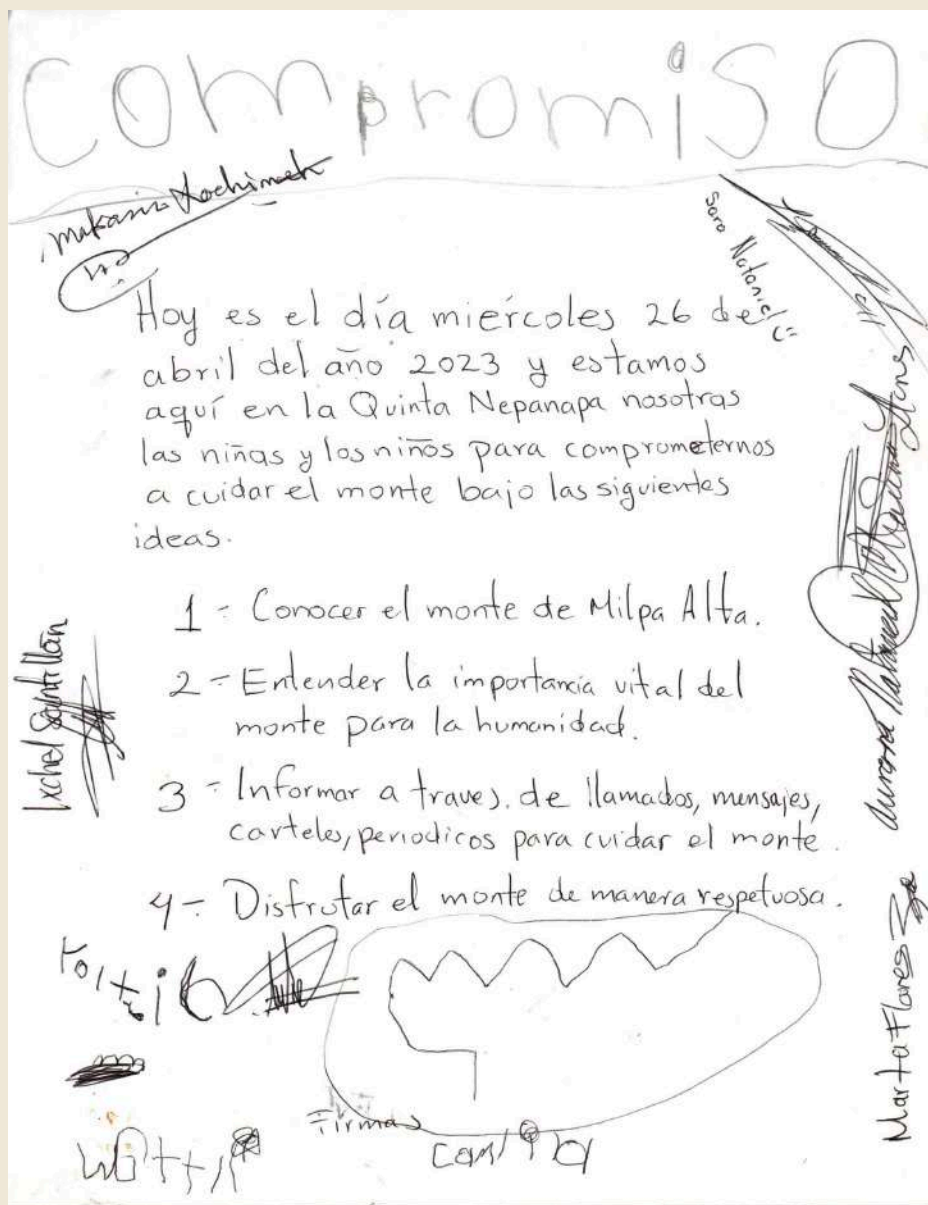 Compromiso
Sara Nataniel
Hoy es el día miércoles 26 de
abril del año 2023 y estamos
aquí en la Quinta Nepanapa nosotras
las niñas y los niños para comprometernos
a cuidar el monte bajo las siguientes
ideas.
1- Conocer el monte de Milpa Alta.
2- Entender la importancia vital del
monte para la humanidad.
3- Informar a traves. de llamados, mensajes,
carteles, periodicos para cuidar el monte.
4- Disfrutar el monte de manera respetuosa.
Ixchel Santillán
Marta Flores
Firmas